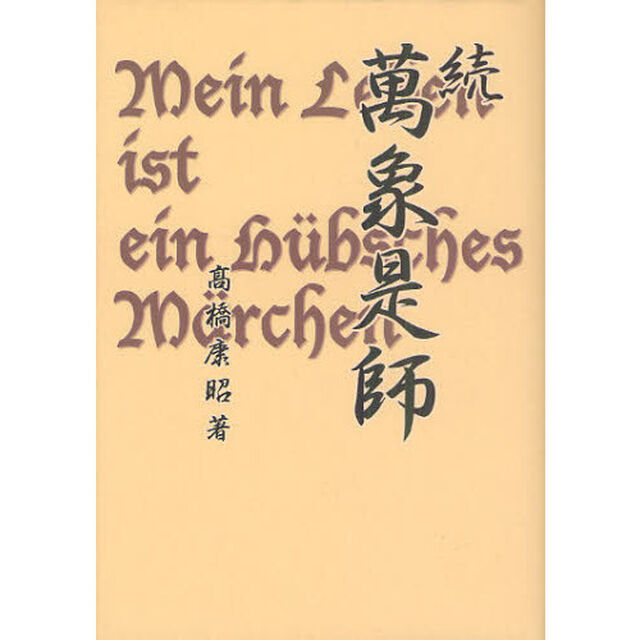 続
萬象是師
Mein Leben
ist
ein Hübsches
Märchen
髙橋康昭 著